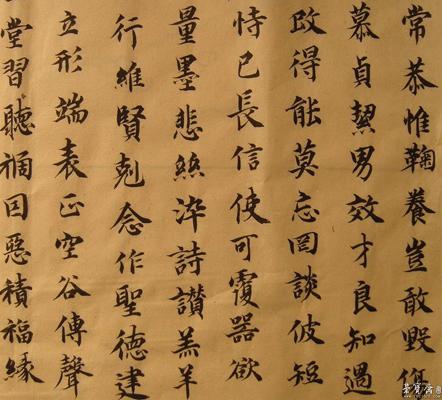 常恭惟鞠養豈敢毀傷
慕貞絜男效才良知過
改得能莫忘罔談彼短
恃己長信使可覆器欲
量墨悲絲染詩讚羔羊
行維賢剋念作聖德建
立形端表正空谷傳聲
堂習聽禍因惡積福緣